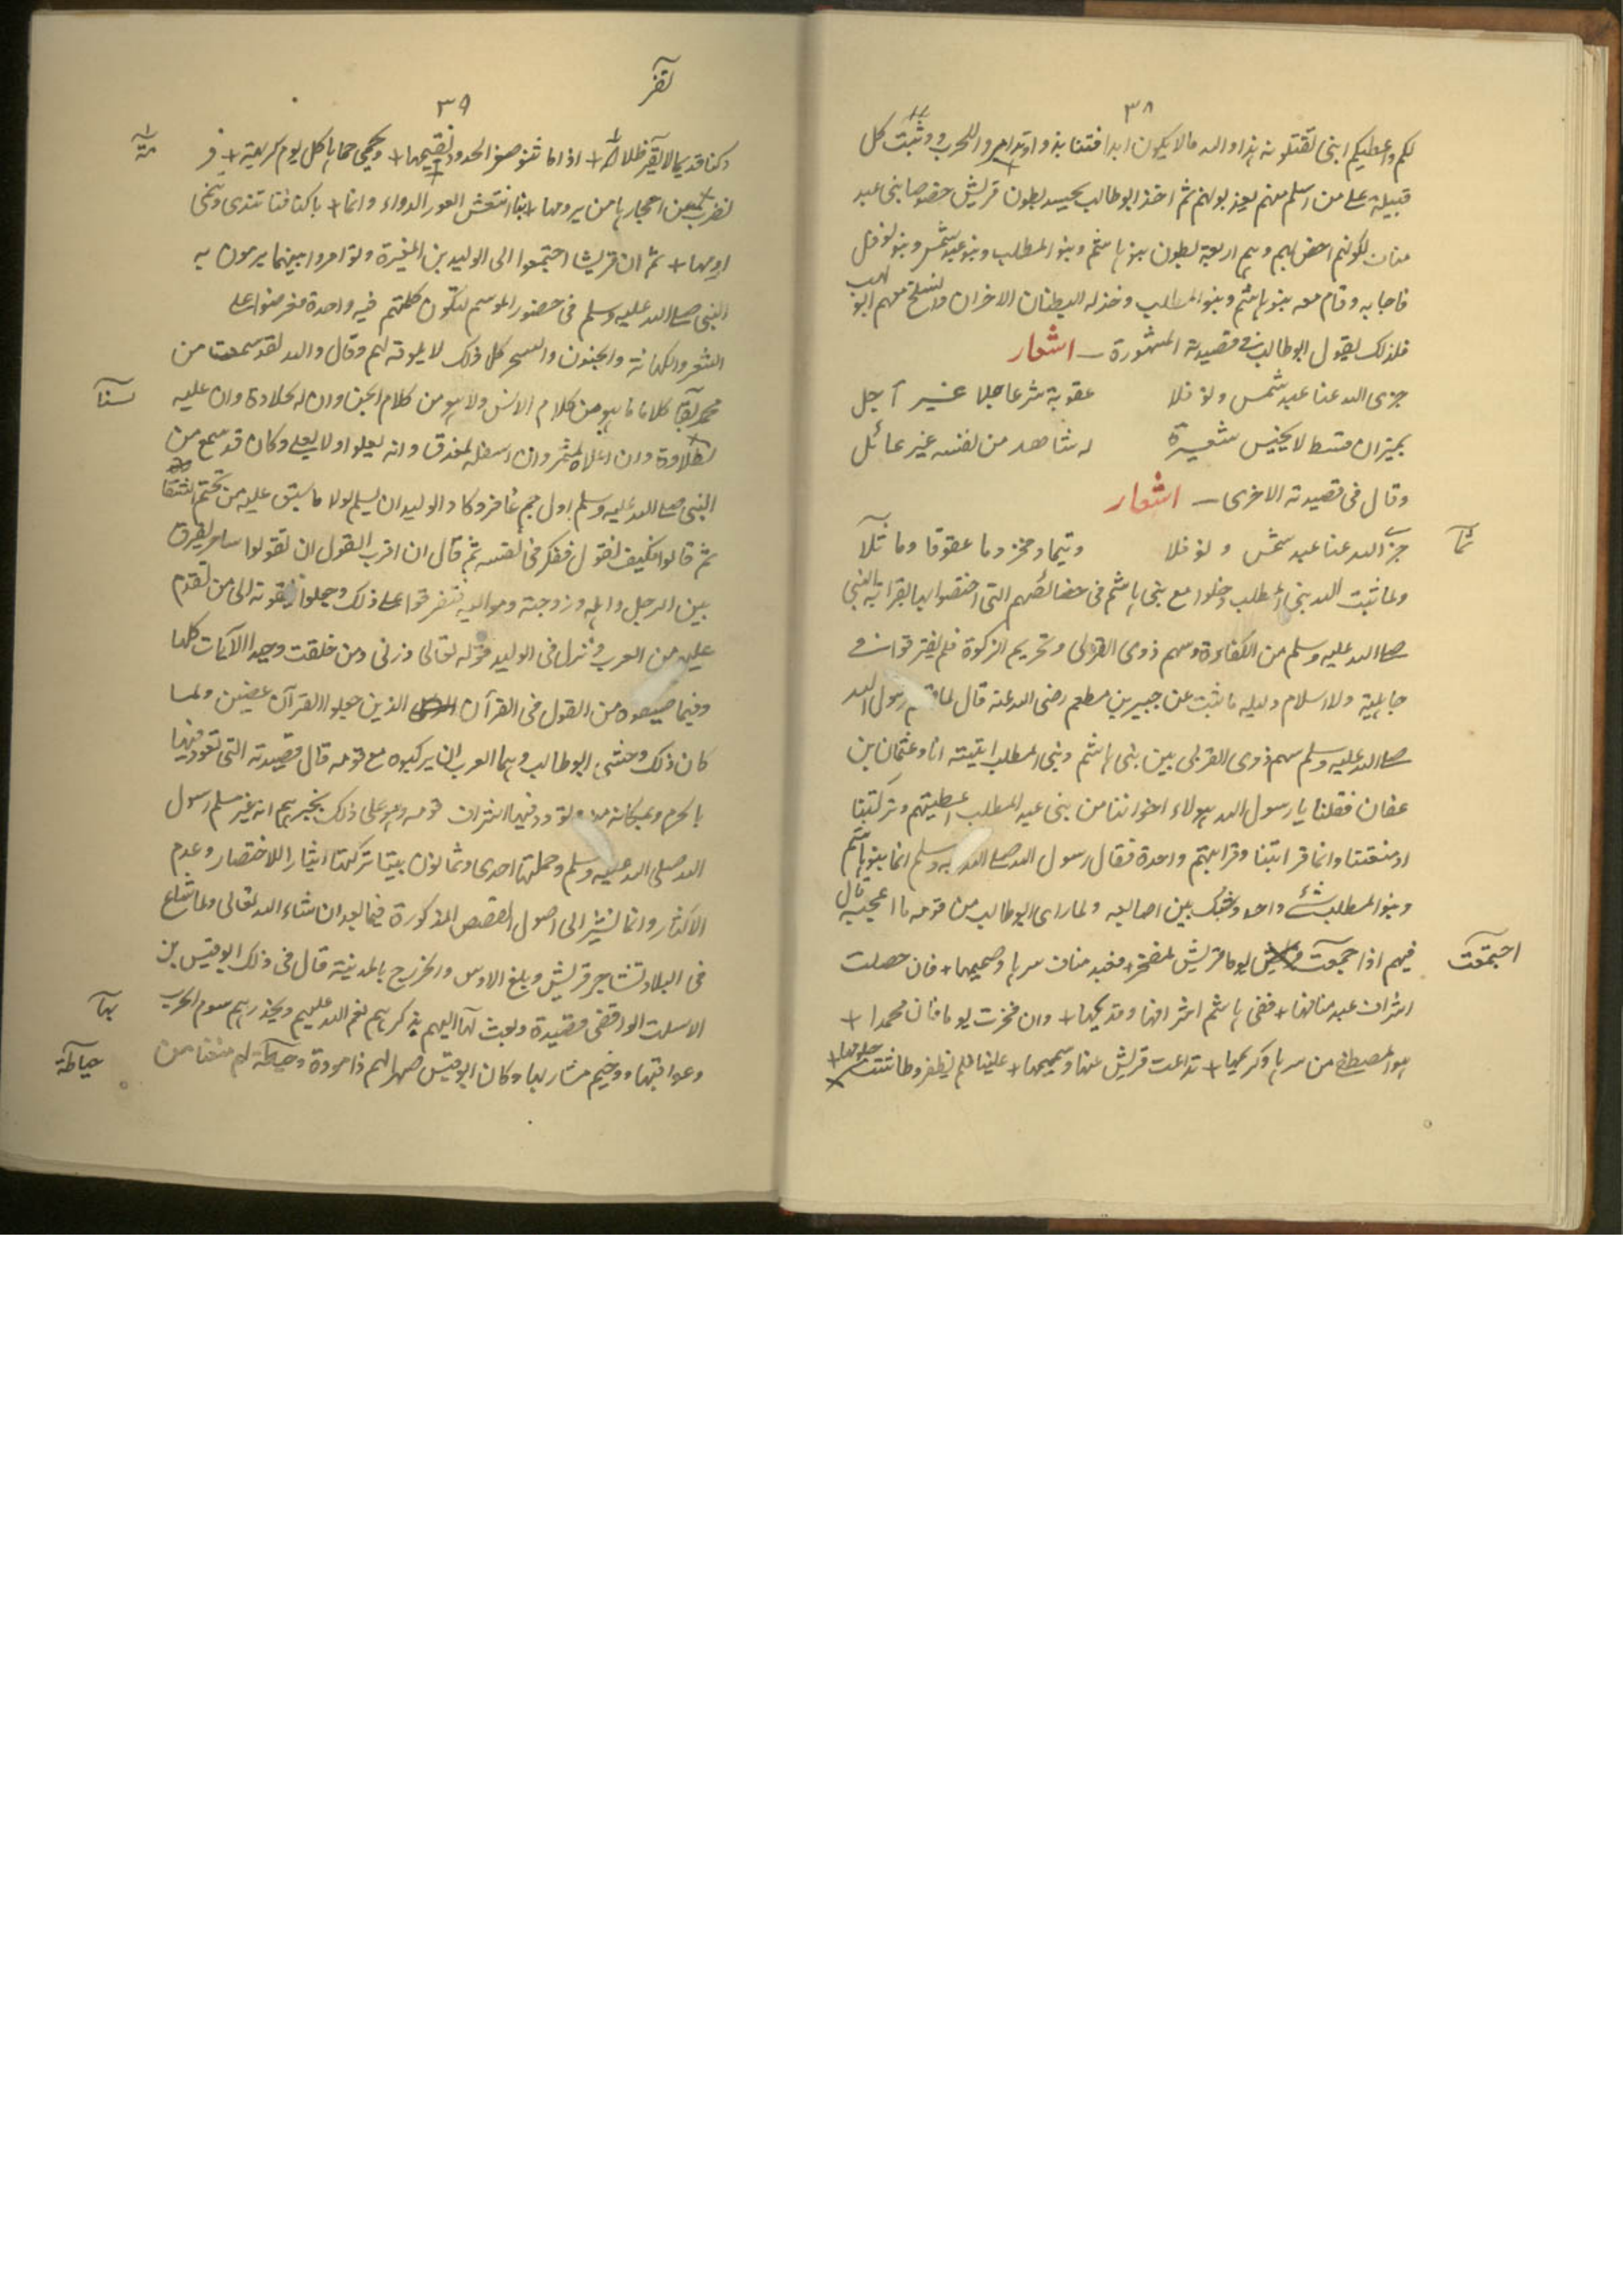 ٣٨
لكم واعطيكم ابنى تقتلونه هذا والله مالا يكون ابدا فتنابذوا وتدامروا للحرب ووثبت كل
قبيلة على من اسلم منهم يعذبونهم ثم اخذ ابو طالب يحشد بطون قريش خصوصا بنى عبد
مناف لكونهم اخض بهم وهم اربعة بطون بنو هاشم وبنو المطلب وبنو عبد شمس وبنو نوفل
فاجابه وقام معه بنو هاشم وبنو المطلب وخذله البطنان الاخران وانسلخ معهم ابو لهب
فلذلك يقول ابو طالب فى قصيدته المشهورة ـ اشعار
جزى الله عنا عبد شمس ونوفلا عقوبة شر عاجلا غير آجل
بميزان قسط لا يخيس شعيرة له شاهد من نفسه غير عائل
وقال فى قصيدته الاخرى ـ اشعار
جزى الله عنا عبد شمس ونوفلا وتيما ومخزوما عقوقا وماثلا
ثما
ولما ثبت الله بنى المطلب دخلوا مع بنى هاشم فى خصائصهم التى اختصوا بها بقرابة النبى
صلى الله عليه وسلم من الكفاءة وسهم ذوى القربى وتحريم الزكوة فلم يفترقوا فى
جاهلية ولا اسلام ودليله ما ثبت عن جبير بن مطعم رضى الله عنه قال لما قسم رسول الله
صلى الله عليه وسلم سهم ذوى القربى بين بنى هاشم وبنى المطلب اتيته انا وعثمان بن
عفان فقلنا يا رسول الله هولاء اخواننا من بنى عبد المطلب اعطيتهم وتركتنا
او منعتنا وانما قرابتنا وقرابتهم واحدة فقال رسول الله صلى الله عليه وسلم انما بنو هاشم
وبنو المطلب شئ واحد وشبك بين اصابعه ولما راى ابو طالب من قومه ما اعجبه قال
فيهم اذا جمعت يوما قريش لمفخر + فعبد مناف سرها وصميمها + فان حصلت
اجتمعت
اشراف عبد منافها + ففى هاشم اشرافها وقديمها + وان فخرت يوما فان محمدا +
هو المصطفى من سرها وكريمها + تداعت قريش غثها وسمينها + علينا فلم يظفر وطاشت حلومها +
تقر
٣٩
وكنا قديما لا نقر ظلامة + اذا ما ثنوا صعر الخدود نقيمها + ونحمى حماها كل يوم كريهة + و
مة
نضرب عن احجارها من يرومها + بنا انتعش العود الذواء وانما + باكنافنا تندى وتنمى
ارومها + ثم ان قريشا اجتمعوا الى الوليد بن المغيرة وتوامروا بينهم فيما يرمون به
النبى صلى الله عليه وسلم فى حضور الموسم لتكون كلمتهم فيه واحدة فعرضوا على
الشعر والكهانة والجنون والسحر كل ذلك لا يليق به لهم وقال والله لقد سمعت من
محمد آنفا كلاما ما هو من كلام الانس ولا هو من كلام الجن وان له لحلاوة وان عليه
لطلاوة وان اعلاه لمثمر وان اسفله لمغدق وانه يعلو ولا يعلى وكان قد سمع من
النبى صلى الله عليه وسلم اول حم غافر وكاد الوليد ان يسلم لولا ما سبق عليه من تحتم الشقا
ثم قالوا فكيف نقول ففكر فى نفسه ثم قال ان اقرب القول ان تقولوا ساحر يفرق
بين الرجل واهله وزوجته ومواليه فتفرقوا على ذلك وجعلوا يلقونه الى من تقدم
عليهم من العرب ونزل فى الوليد قوله تعالى ذرنى ومن خلقت وحيدا الآيات كلها
وفيما صنعوه من القول فى القرآن الذين جعلوا القرآن عضين ولما
كان ذلك وخشى ابو طالب دهماء العرب ان يركبوه مع قومه قال قصيدته التى تعوذ فيها
بالحرم وبمكانه منه وتودد فيها اشراف قومه وهو على ذلك يخبرهم انه غير مسلم رسول
الله صلى الله عليه وسلم وجملتها احدى وثمانون بيتا تركتها ايثارا للاختصار وعدم
الاكثار وانما نشير الى اصول القصص المذكورة فيما بعد ان شاء الله تعالى ولما شاع
فى البلاد تشاجر قريش وبلغ الاوس والخزرج بالمدينة قال فى ذلك ابو قيس بن
الاسلت الواقفى قصيدة وبعث بها اليهم يذكرهم نعم الله عليهم ويحذرهم سوم الحرب
بها
وعواقبها ووخيم مشاربها وكان ابو قيس صهرا لهم ذا مودة وحياطة لهم منعنا من
حياطة